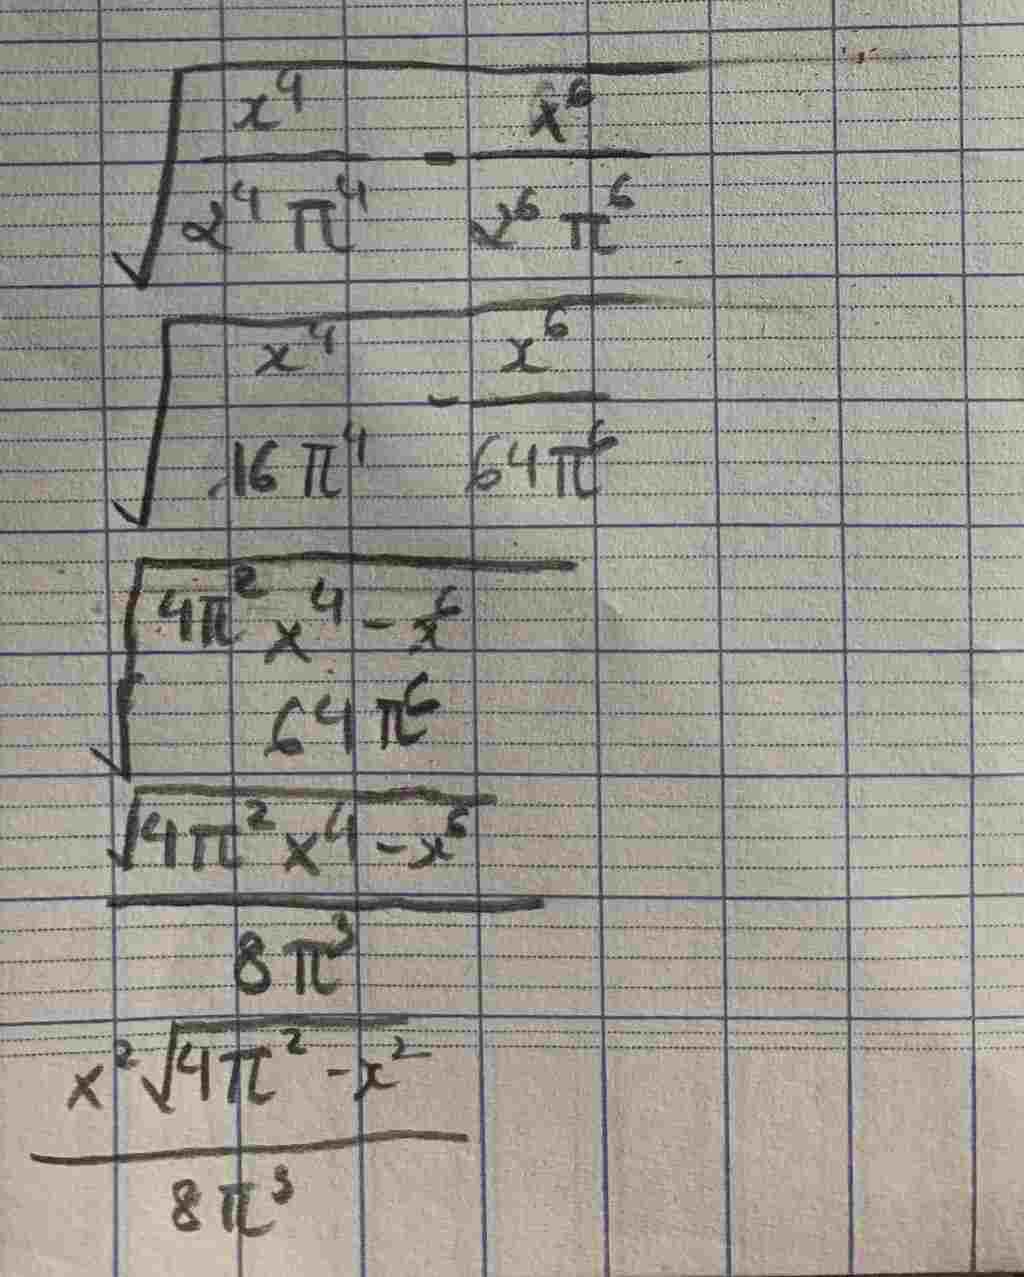 √(x⁴/(2⁴ π⁴) - x⁶/(2⁶ π⁶))
√(x⁴/(16 π⁴) - x⁶/(64 π⁶))
√((4π² x⁴ - x⁶)/(64 π⁶))
√(4π² x⁴ - x⁶)/(8 π³)
x² √(4π² - x²)/(8 π³)